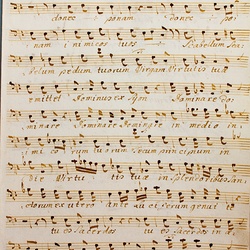 donec ponam donec po
nam inimicos tuos Scabellum Sca
bellum pedum tuorum Virgam Virtutis tuæ
emittet Dominus ex Syon Dominare Do
minare Dominare Dominare in medio in
mi co rum tuorum Tecum principium in
Die Virtu tis tuæ in Splendoribus San
ctorum ex utero ante Lu ciferum genui te
tu es Sacerdos tu es Sacerdos in æ